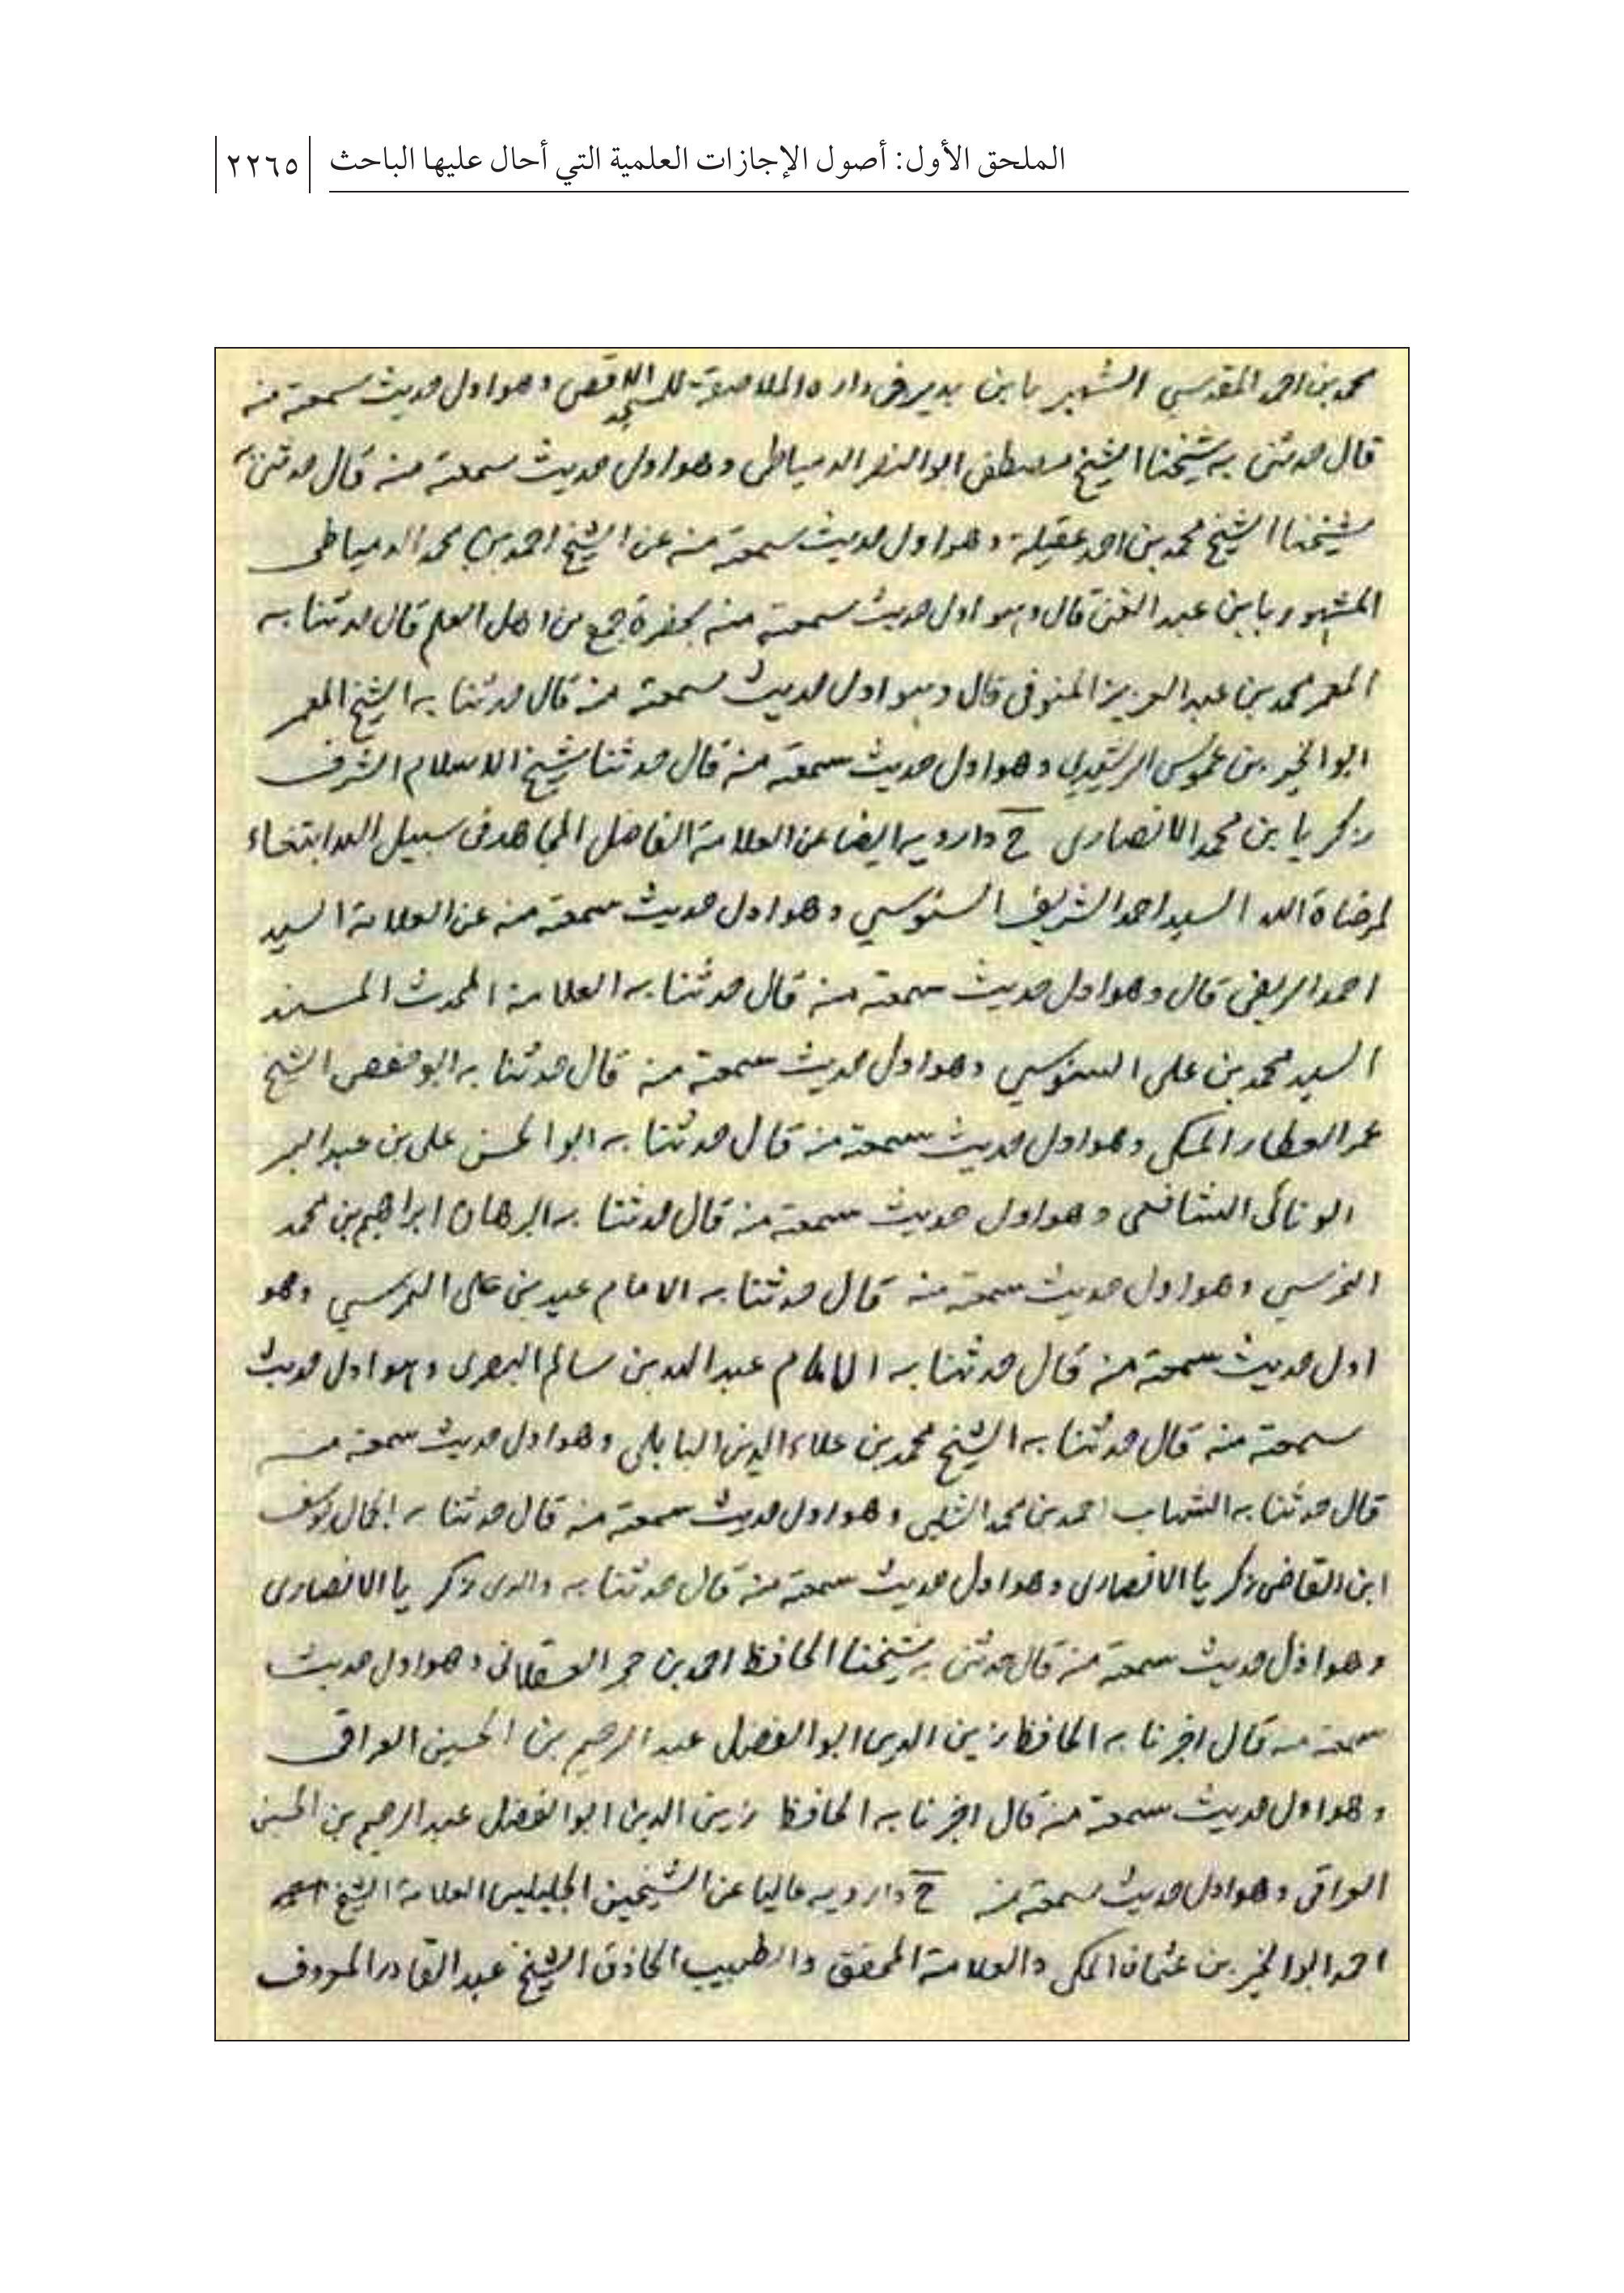 الملحق الأول: أصول الإجازات العلمية التي أحال عليها الباحث ٢٢٦٥
محمد بن احمد المقدسي الشهير بابن بدير في داره الملاصقة للمسجد الاقصى وهو اول حديث سمعته منه
قال حدثني به شيخنا الشيخ مصطفى ابو النصر الدمياطي وهو اول حديث سمعته منه قال حدثني به
شيخنا الشيخ محمد بن احمد عقيلة وهو اول حديث سمعته منه عن الشيخ احمد بن محمد الدمياطي
المشهور بابن عبد الغني قال وهو اول حديث سمعته منه بحضرة جمع من اهل العلم قال حدثنا به
المعمر محمد بن عبد العزيز المنوفي قال وهو اول حديث سمعته منه قال حدثنا به الشيخ المعمر
ابو الخير بن عموس الرشيدي وهو اول حديث سمعته منه قال حدثنا شيخ الاسلام الشرف
زكريا بن محمد الانصاري ح وارويه ايضا عن العلامة الفاضل المجاهد في سبيل الله ابتغاء
لمرضاة الله السيد احمد الشريف السنوسي وهو اول حديث سمعته منه عن العلامة السيد
احمد الريفي قال وهو اول حديث سمعته منه قال حدثنا به العلامة المحدث المسند
السيد محمد بن علي السنوسي وهو اول حديث سمعته منه قال حدثنا به ابو حفص الشيخ
عمر العطار المكي وهو اول حديث سمعته منه قال حدثنا به ابو الحسن علي بن عبد البر
الونائي الشافعي وهو اول حديث سمعته منه قال حدثنا به البرهان ابراهيم بن محمد
النمرسي وهو اول حديث سمعته منه قال حدثنا به الامام عيد بن علي النمرسي وهو
اول حديث سمعته منه قال حدثنا به الامام عبد الله بن سالم البصري وهو اول حديث
سمعته منه قال حدثنا به الشيخ محمد بن علاء الدين البابلي وهو اول حديث سمعته منه
قال حدثنا به الشهاب احمد بن محمد الشلبي وهو اول حديث سمعته منه قال حدثنا به الجمال يوسف
ابن القاضي زكريا الانصاري وهو اول حديث سمعته منه قال حدثنا به والدي زكريا الانصاري
وهو اول حديث سمعته منه قال حدثني به شيخنا الحافظ احمد بن حجر العسقلاني وهو اول حديث
سمعته منه قال اخبرنا به الحافظ زين الدين ابو الفضل عبد الرحيم بن الحسين العراقي
وهو اول حديث سمعته منه قال اخبرنا به الحافظ زين الدين ابو الفضل عبد الرحيم بن الحسين
العراقي وهو اول حديث سمعته منه ح وارويه عاليا عن الشيخين الجليلين العلامة الشيخ
احمد ابو الخير بن عثمان المكي والعلامة المحقق والطبيب الحاذق الشيخ عبد القادر المعروف